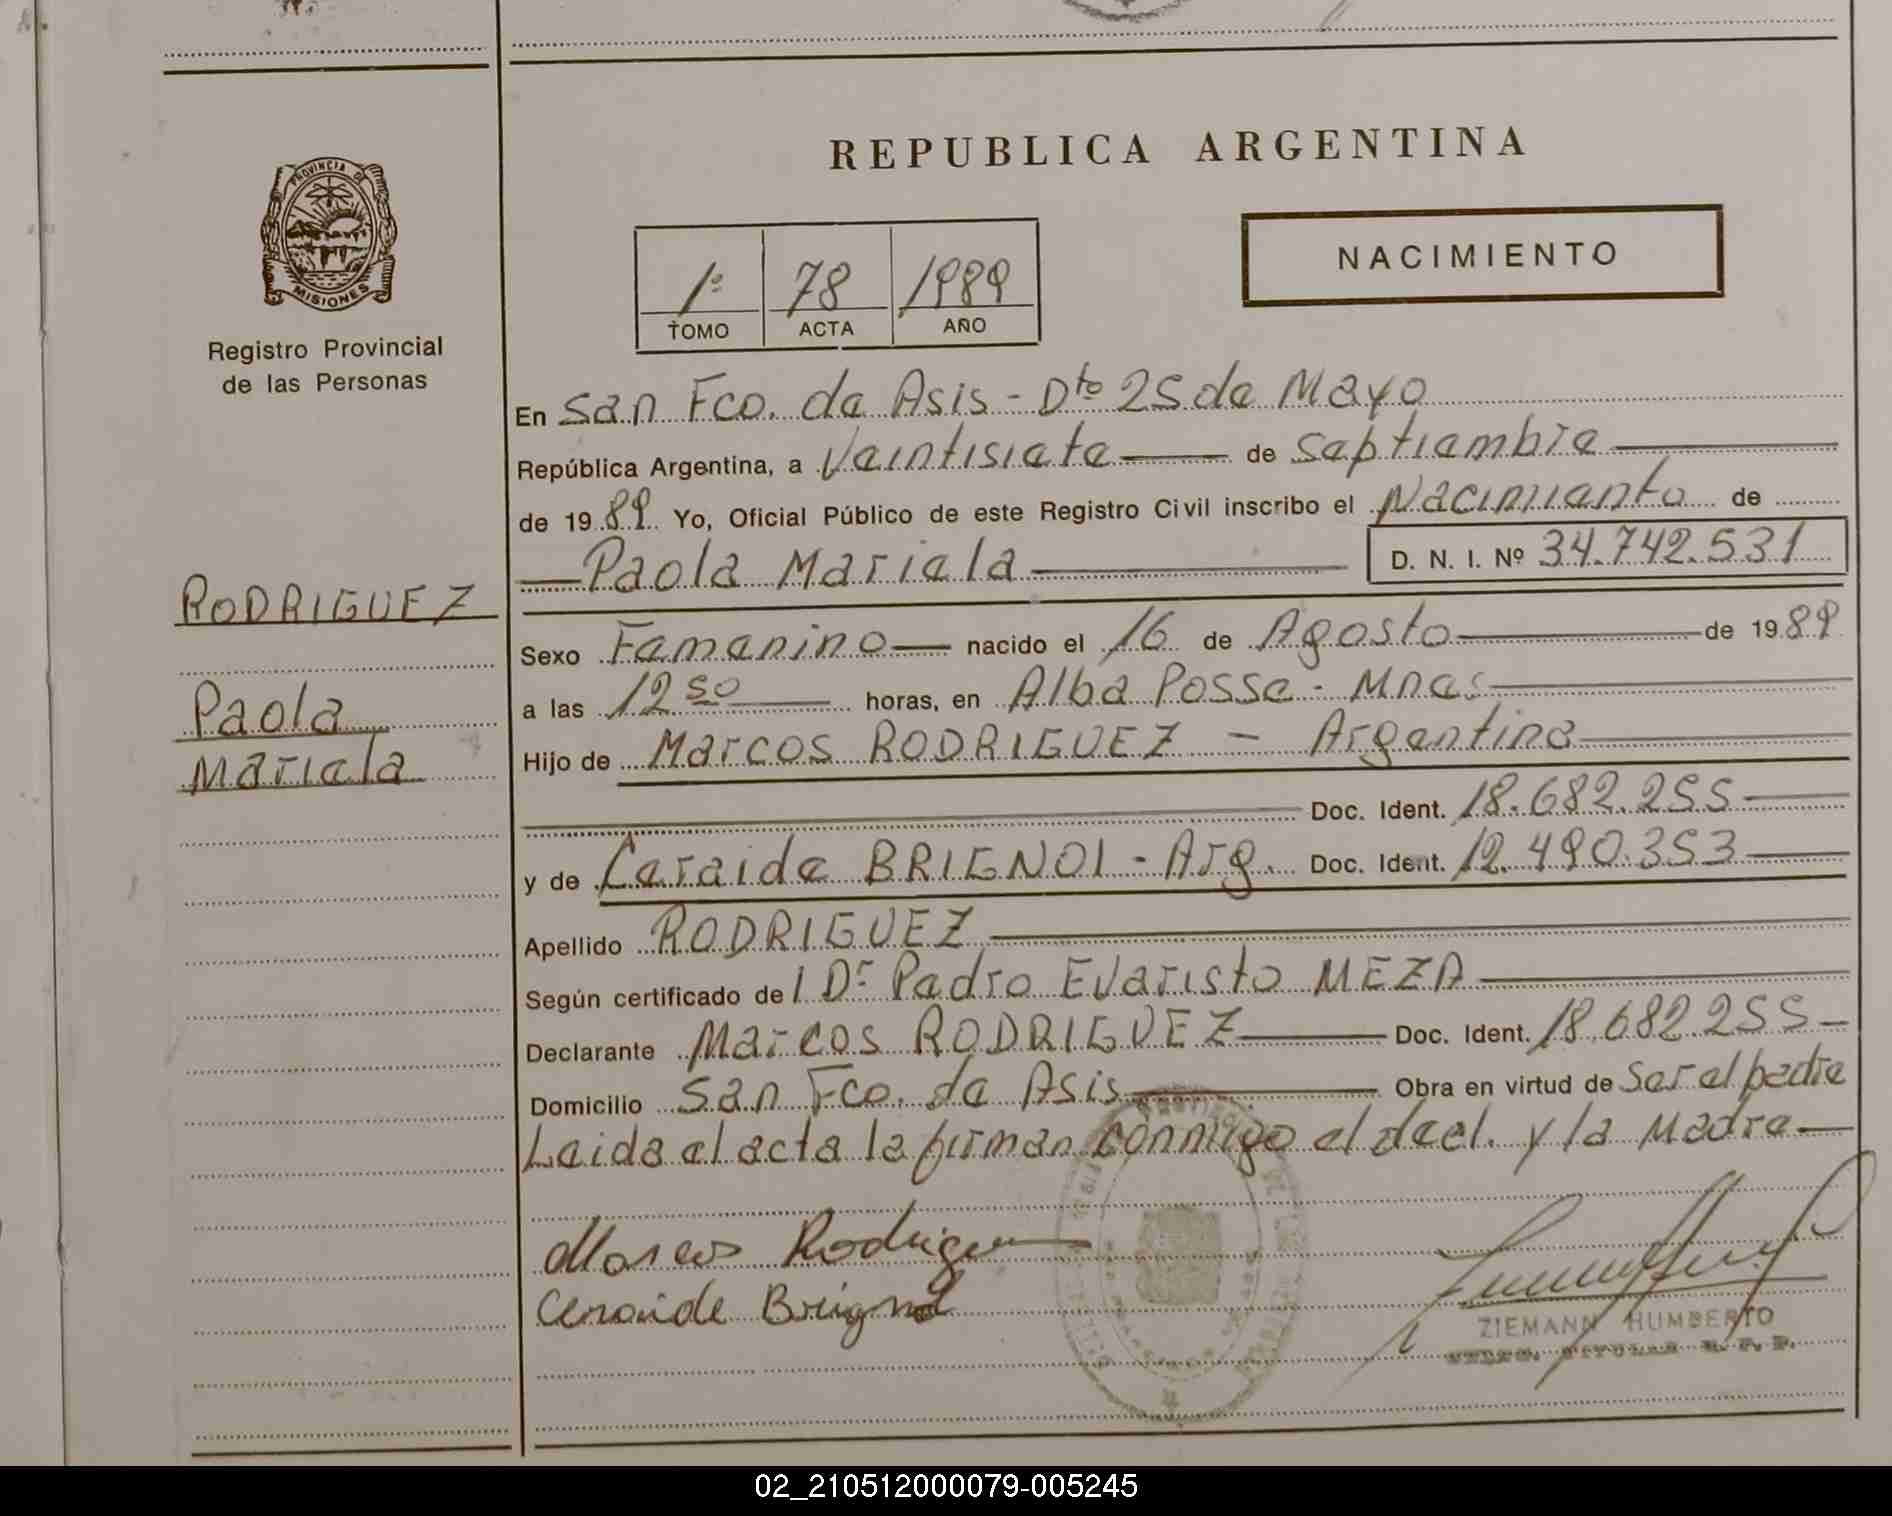 REPUBLICA ARGENTINA
NACIMIENTO
1º 78 1989
TOMO ACTA AÑO
PROVINCIA DE
MISIONES
Registro Provincial
de las Personas
RODRIGUEZ
Paola
Mariela
En San Fco. de Asis - Dto 25 de Mayo
República Argentina, a Veintisiete de Septiembre
de 1989 Yo, Oficial Público de este Registro Civil inscribo el Nacimiento de
Paola Mariela D. N. I. Nº 34.742.531
Sexo Femenino nacido el 16 de Agosto de 1989
a las 12 50 horas, en Alba Posse - Mnes
Hijo de Marcos RODRIGUEZ - Argentino
Doc. Ident. 18.682.255
y de Ceraide BRIGNOL - Arg. Doc. Ident. 12.490.353
Apellido RODRIGUEZ
Según certificado del Dr Pedro Evaristo MEZA
Declarante Marcos RODRIGUEZ Doc. Ident. 18.682.255
Domicilio San Fco. de Asis Obra en virtud de Ser el padre
Leida el acta la firman conmigo el decl. y la Madre
Marcos Rodriguez
Ceraide Brignol
ZIEMANN HUMBERTO
02_210512000079-005245